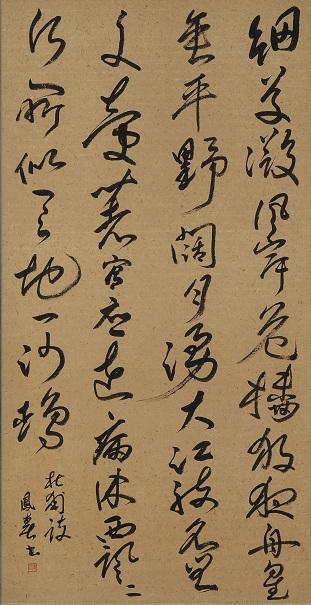 細草微風岸危檣獨夜舟星
垂平野闊月湧大江流名豈
文章著官應老病休飄〻
何所似天地一沙鷗
杜甫詩
鳳